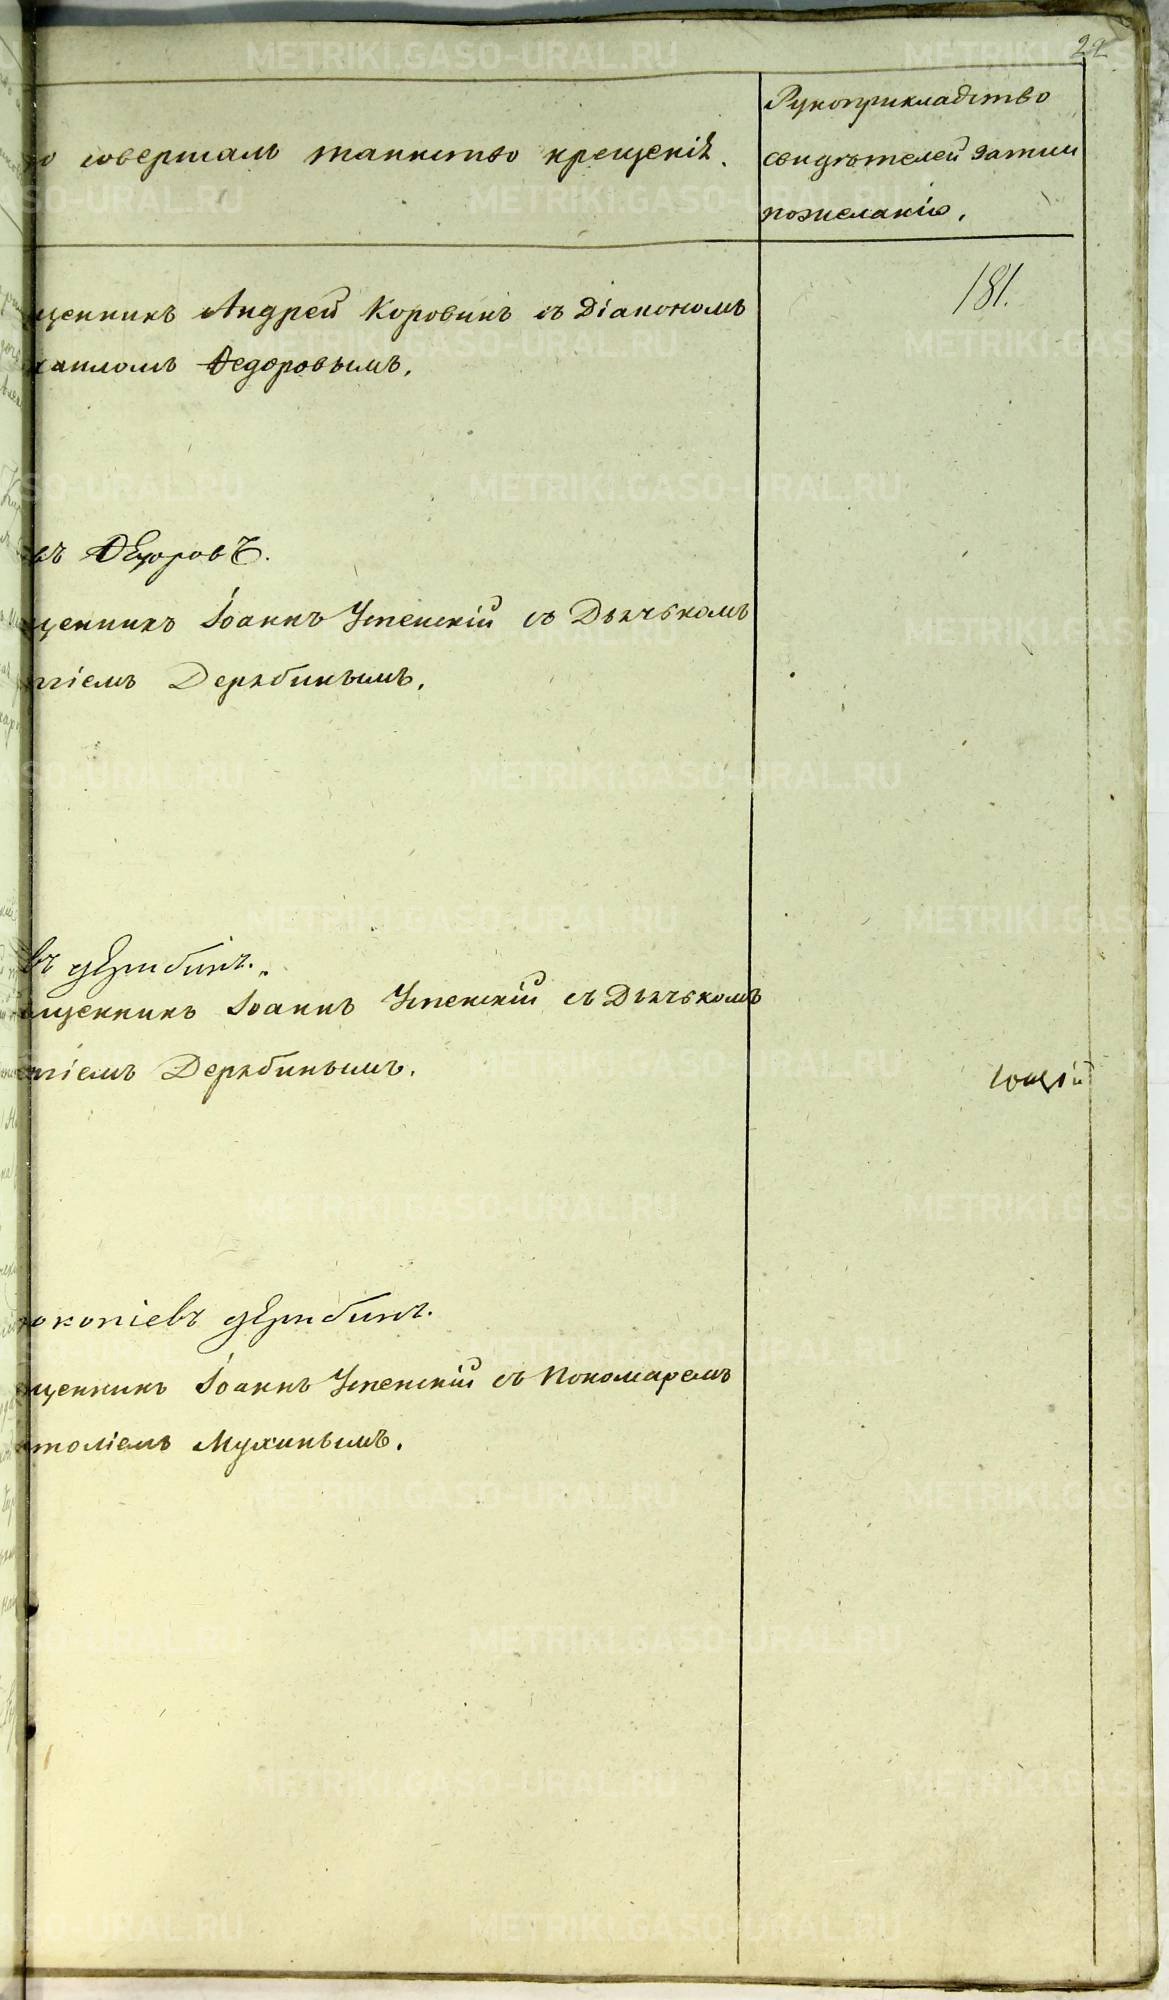 22
то совершалъ таинство крещенія.
Рукоприкладство
свидѣтелей записи
по желанію.
181.
щенникъ Андрей Коровинъ съ Діакономъ
хаиломъ Ѳедоровымъ.
въ Ѳедоровъ.
щенникъ Іоаннъ Успенскій съ Дьячькомъ
ргіемъ Дерябинымъ.
въ дерябинъ.
ященникъ Іоаннъ Успенскій съ Дьячькомъ
ргіемъ Дерябинымъ.
ющій
рокопіевъ дерябинъ.
щенникъ Іоаннъ Успенскій съ Пономаремъ
атоліемъ Мухинымъ.
METRIKI.GASO-URAL.RU